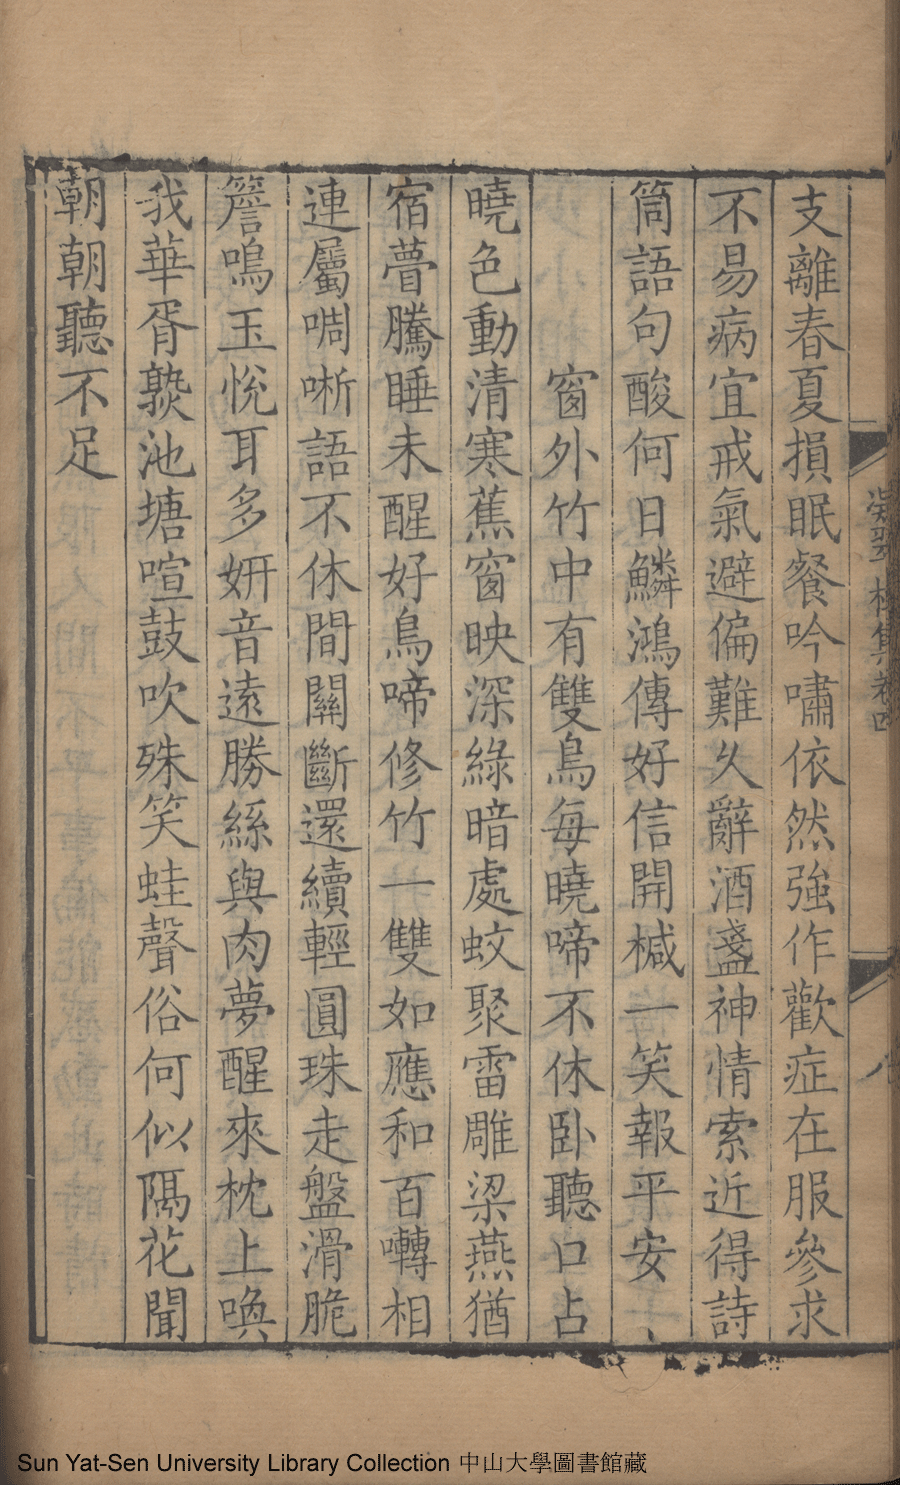 支離春夏損眠餐吟嘯依然強作歡症在服參求
不易病宜戒氣避偏難久辭酒盞神情索近得詩
筒語句酸何日鱗鴻傳好信開椷一笑報平安
窗外竹中有雙鳥每曉啼不休臥聽口占
曉色動清寒蕉窗映深綠暗處蚊聚雷雕梁燕猶
宿瞢騰睡未醒好鳥啼修竹一雙如應和百囀相
連屬啁哳語不休間關斷還續輕圓珠走盤滑脆
簷鳴玉悅耳多妍音遠勝絲與肉夢醒來枕上喚
我華胥孰池塘喧鼓吹殊笑蛙聲俗何似隔花聞
朝朝聽不足
凝翠樓集卷四
八
Sun Yat-Sen University Library Collection 中山大學圖書館藏